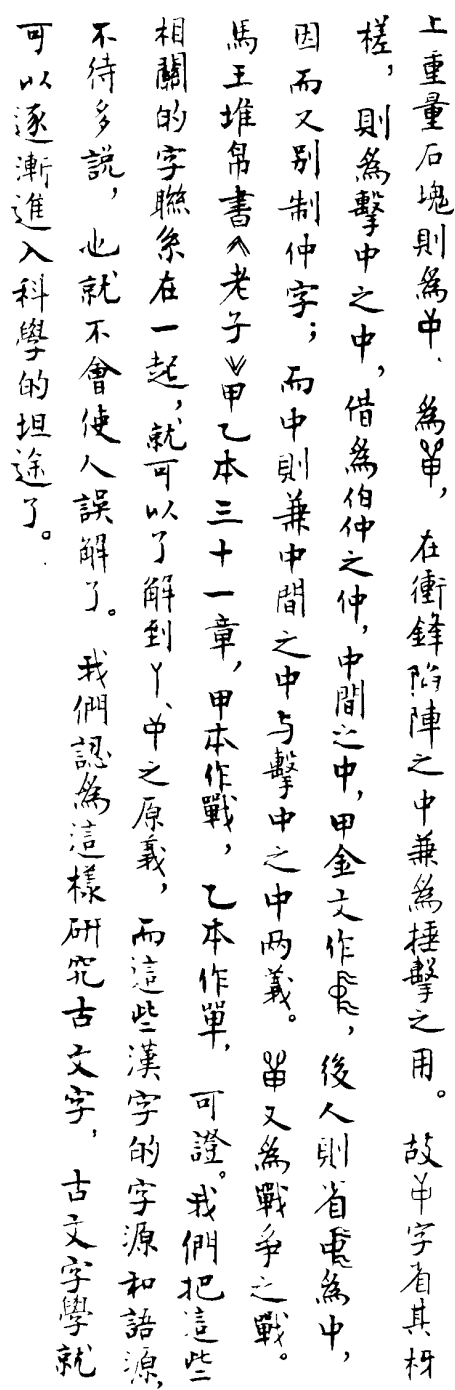 上重量石塊則爲、爲，在衝鋒陷陣之中兼爲捶擊之用。故字省其枒
槎，則爲擊中之中，借爲伯仲之仲，中間之中，甲金文作，後人則省爲中，
因而又别制仲字；而中則兼中間之中与擊中之中两義。又爲戰爭之戰。
馬王堆帛書《老子》甲乙本三十一章，甲本作戰，乙本作單，可證。我們把這些
相關的字聯系在一起，就可以了解到丫、之原義，而這些漢字的字源和語源，
不待多説，也就不會使人誤解了。我們認爲這樣研究古文字，古文字學就
可以逐漸進入科學的坦途了。